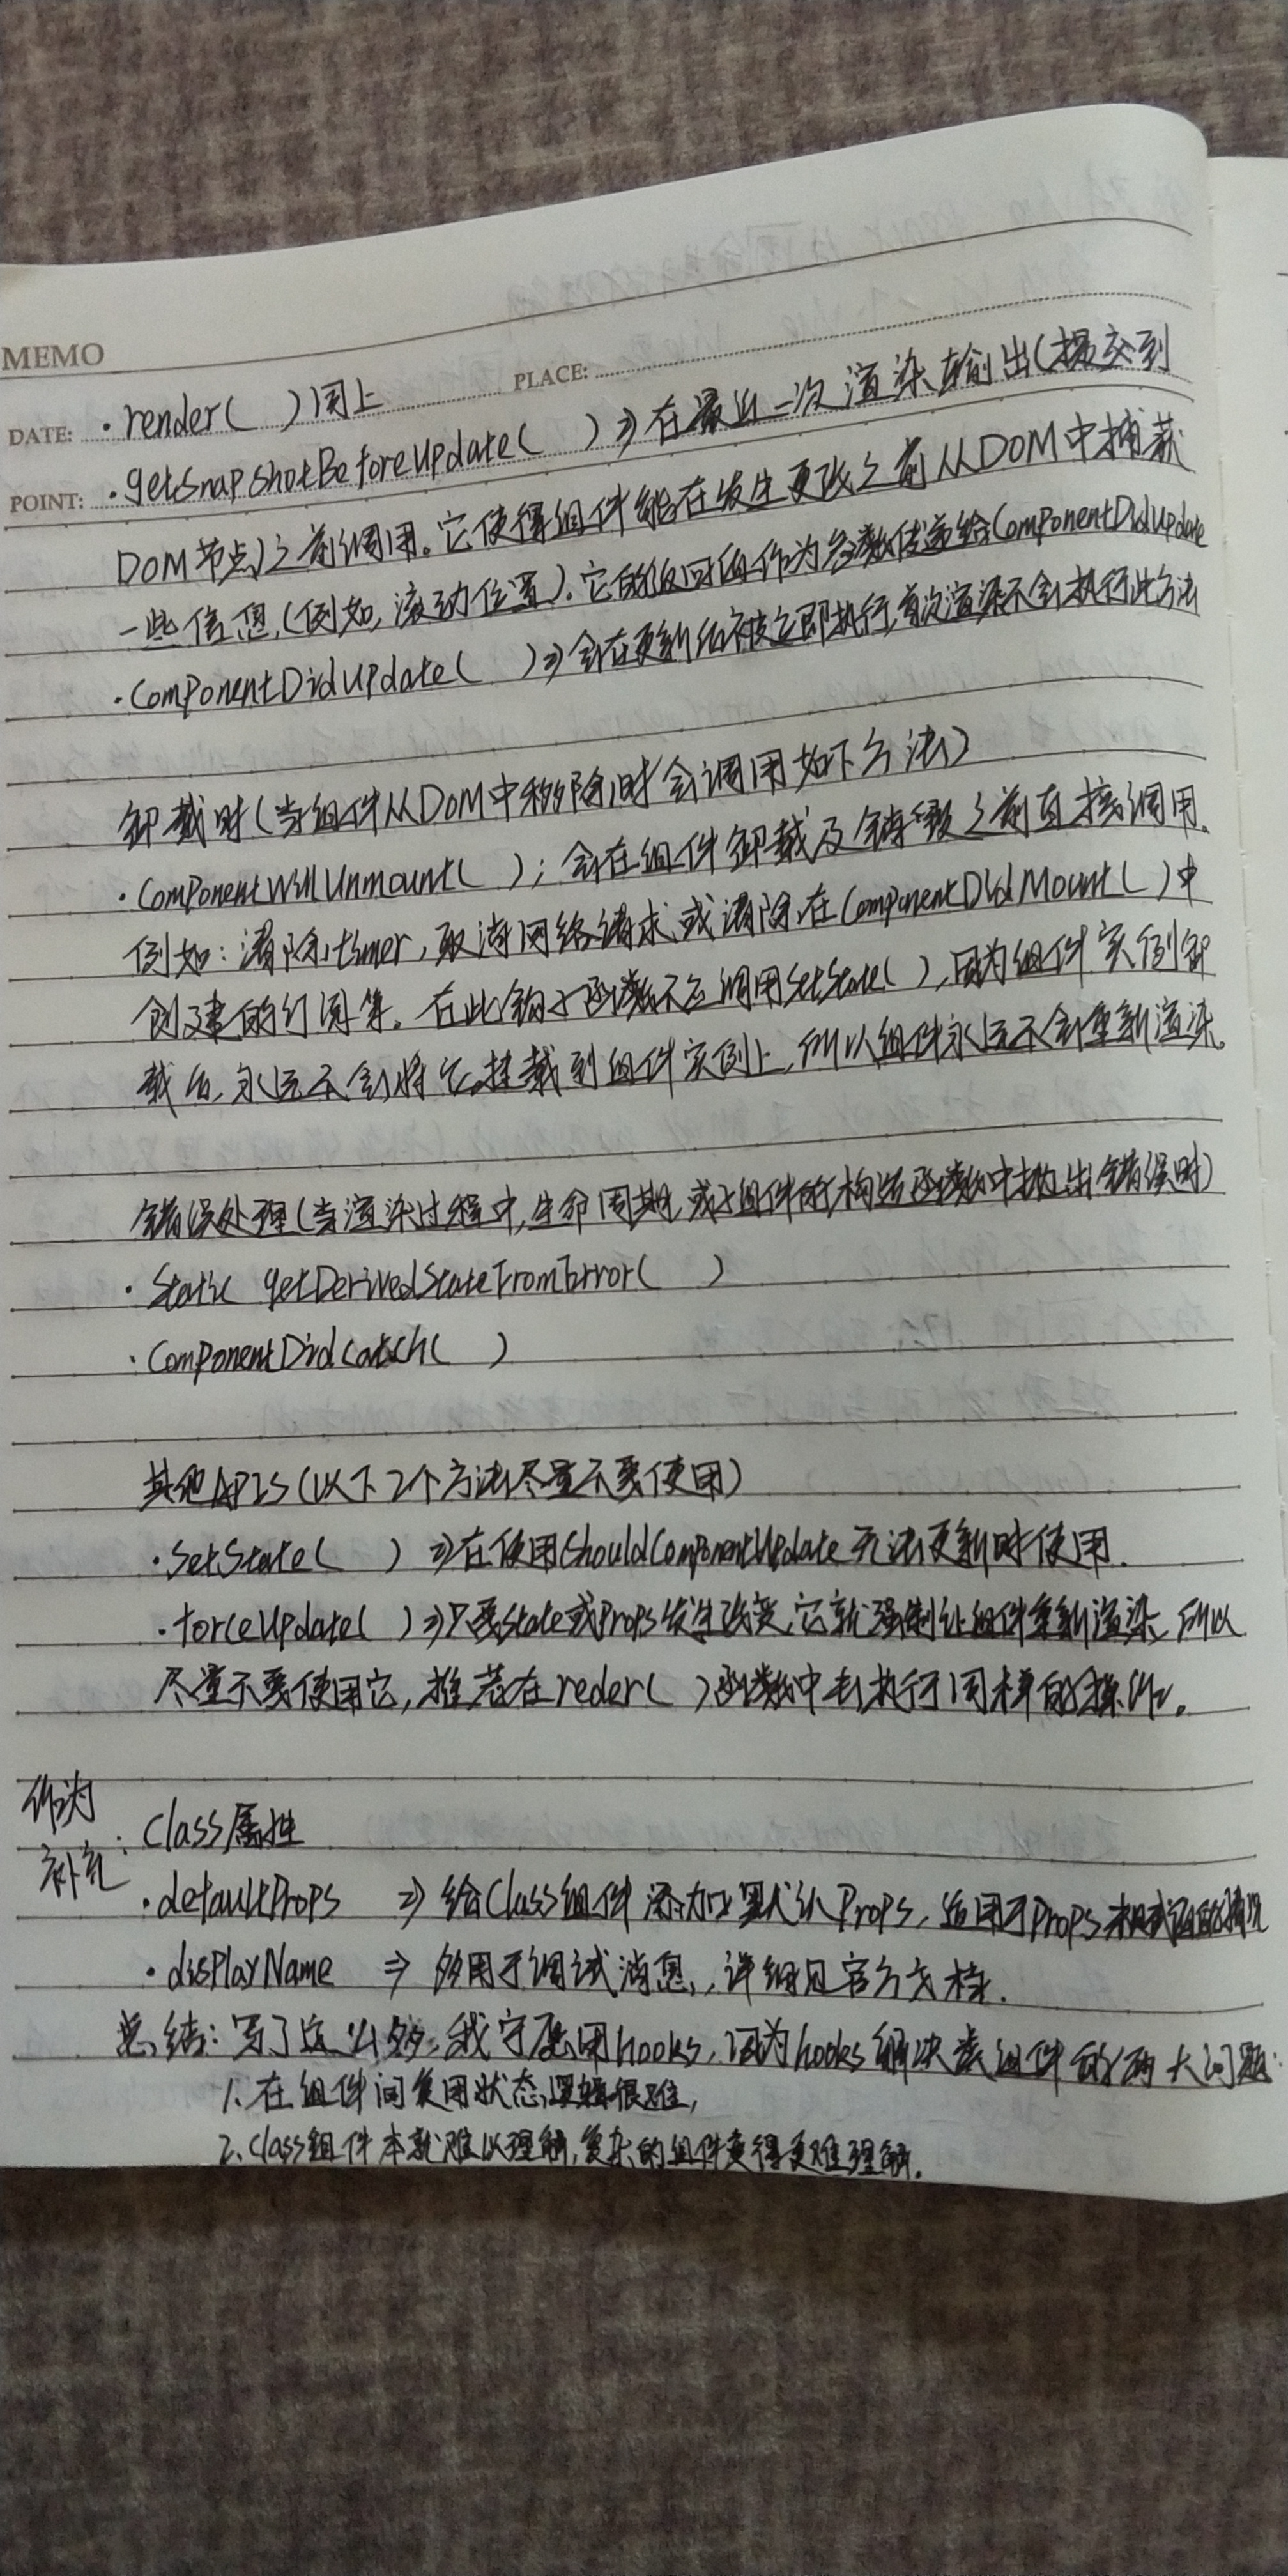 MEMO
PLACE:
DATE: ·render( )同上
POINT: ·getSnapshotBeforeUpdate( )⇒在最近一次渲染输出(提交到
DOM节点)之前调用。它使得组件能在发生更改之前从DOM中捕获
一些信息,(例如,滚动位置).它的返回值作为参数传递给ComponentDidUpdate
·ComponentDidUpdate( )⇒会在更新后被立即执行,首次渲染不会执行此方法
卸载时(当组件从DOM中移除时会调用如下方法)
·ComponentWillUnmount( );会在组件卸载及销毁之前直接调用.
例如:清除timer,取消网络请求或清除在ComponentDidMount( )中
创建的订阅等。在此钩子函数不应调用setState( ),因为组件实例卸
载后,永远不会将它挂载到组件实例上,所以组件永远不会重新渲染。
错误处理(当渲染过程中,生命周期,或子组件的构造函数中抛出错误时)
·Static getDerivedStateFromError( )
·ComponentDidCatch( )
其他APIS(以下2个方法尽量不要使用)
·SetState( ) ⇒在使用ShouldComponentUpdate无法更新时使用.
·forceUpdate( )⇒只要State或Props发生改变,它就强制让组件重新渲染,所以
尽量不要使用它,推荐在reder( )函数中去执行同样的操作。
作为
补充:Class属性
·defaultProps ⇒ 给Class组件添加默认Props,适用于Props
·displayName ⇒ 多用于调试消息,详细见官方文档.
总结:写了这么多,我宁愿用hooks,因为hooks解决类组件的两大问题:
1.在组件间复用状态逻辑很难,
2.Class组件本就难以理解,复杂的组件变得更难理解.